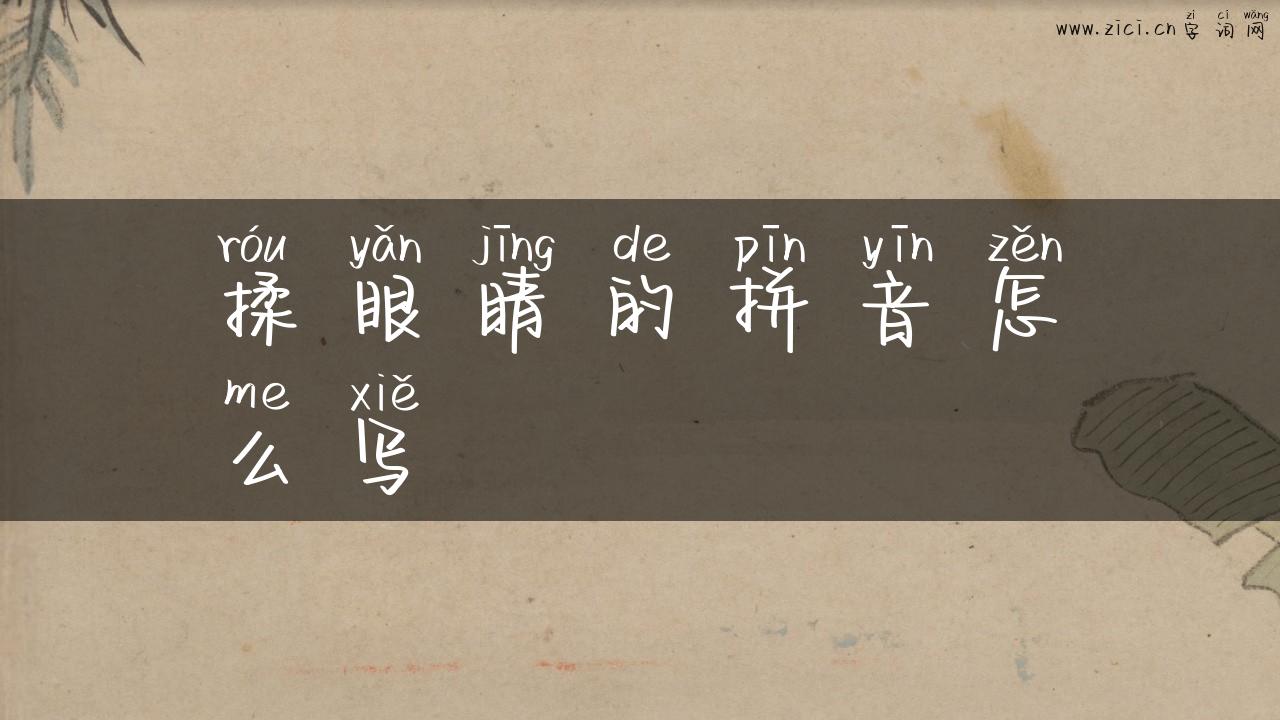 zì cí wǎng
www.zici.cn 字词网
róu yǎn jīng de pīn yīn zěn
揉眼睛的拼音怎
me xiě
么写